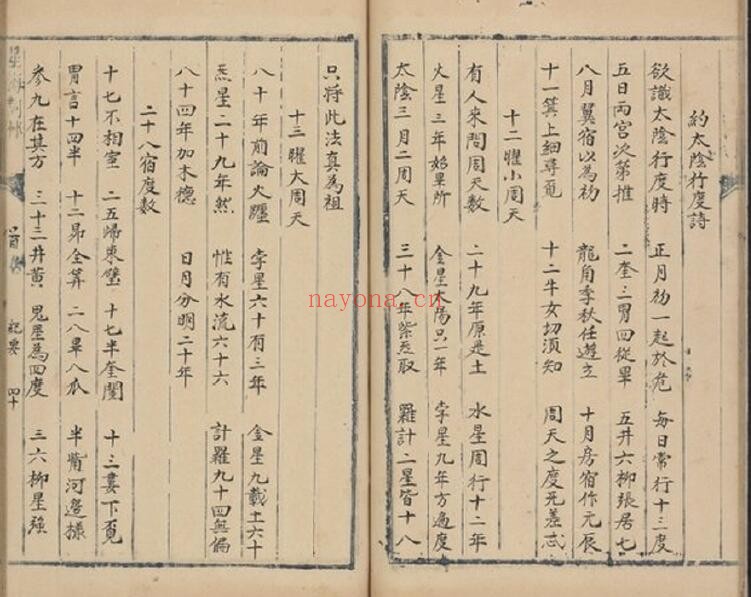 約太陰行度詩
欲識太陰行度時 正月初一起於危 每日常行十三度
五日兩宮次第推 二奎三胃四從畢 五井六柳張居七
八月翼宿以為初 龍角季秋任遊立 十月房宿作元辰
十一箕上細尋覓 十二牛女切須知 周天之度无差忒
十二曜小周天
有人來問周天數 二十九年原是土 水星周行十二年
火星三年始畢所 金星太陽只一年 孛星九年方遍度
太陰三月二周天 三十八年紫炁取 羅計二星皆十八
只將此法真為祖
十三曜大周天
八十年前論火躔 孛星六十有三年 金星九載土六十
炁星二十九年然 惟有水流六十六 計羅九十四無偏
八十四年加木德 日月分明二十年
二十八宿度數
十七不相室 二五歸東壁 十七半奎闊 十三婁下覓
胃言十四半 十二昴全算 二八畢八瓜 半觜河邊樣
參九在其方 三十三井黃 鬼星為四度 三六柳星強
紀要 四十
nayona.cn